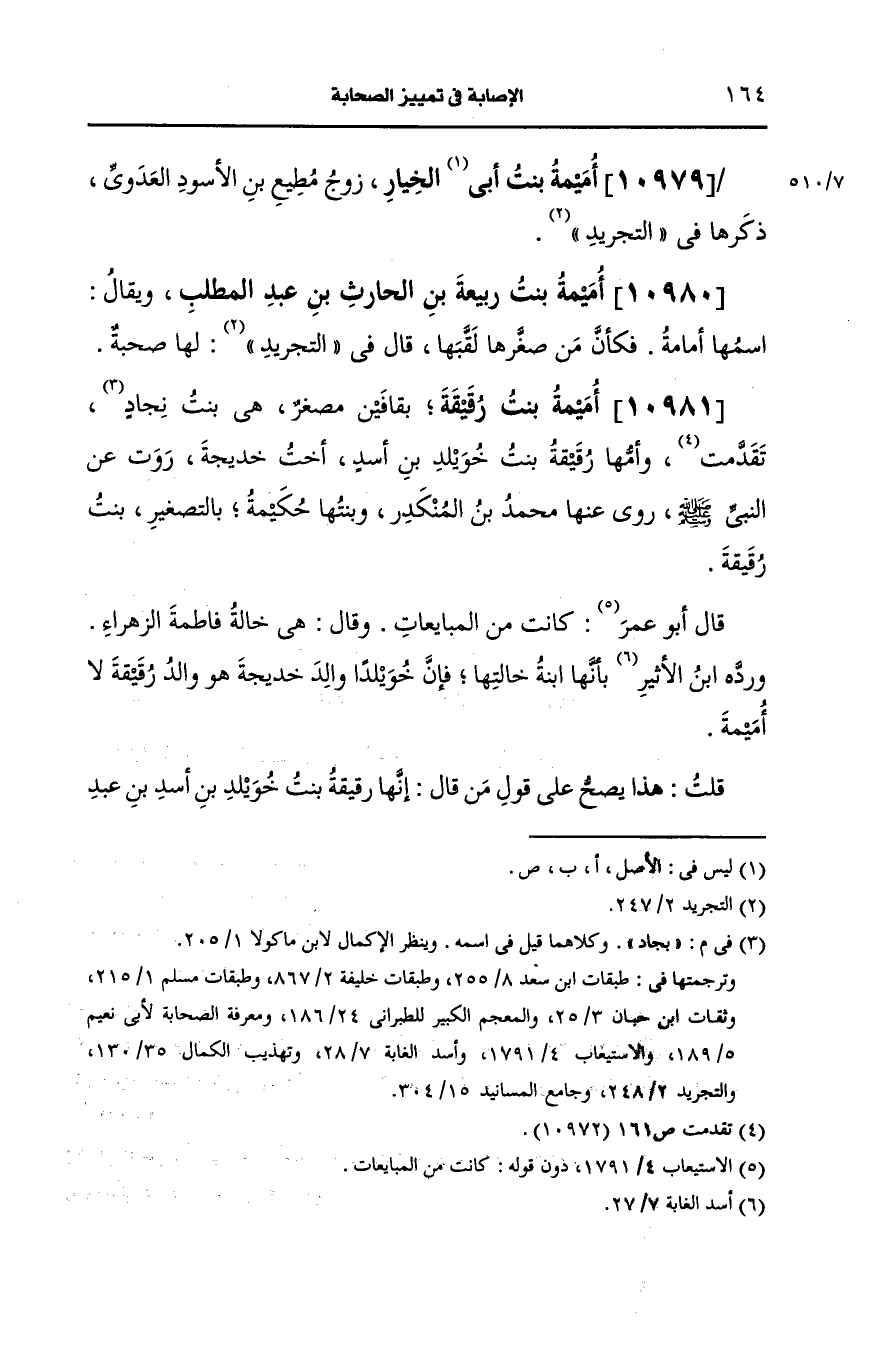 ١٦٤ الإصابة فى تمييز الصحابة
٥١٠/٧ /[١٠٩٧٩] أُمَيْمةُ بنتُ أبى(١) الخِيارِ، زوجُ مُطِيعِ بنِ الأسودِ العَدَوىِّ،
ذكَرها فى «التجريدِ»(٢).
[١٠٩٨٠] أُمَيْمةُ بنتُ ربيعةَ بنِ الحارثِ بنِ عبدِ المطلبِ، ويقالُ:
اسمُها أمامةُ. فكأنَّ مَن صغَّرها لَقَّبَها، قال فى «التجريدِ»(٢): لها صحبةٌ.
[١٠٩٨١] أُمَيْمةُ بنتُ رُقَيْقَةَ؛ بقافَيْن مصغرٌ، هى بنتُ نِجادٍ(٣)،
تَقَدَّمت(٤)، وأمُّها رُقَيْقةُ بنتُ خُوَيْلدِ بنِ أسدٍ، أختُ خديجةَ، رَوَت عن
النبىِّ ﷺ، روى عنها محمدُ بنُ المُنْكَدِر، وبنتُها حُكَيْمةُ؛ بالتصغيرِ، بنتُ
رُقَيقةَ.
قال أبو عمرَ(٥): كانت من المبايعاتِ. وقال: هى خالةُ فاطمةَ الزهراءِ.
وردَّه ابنُ الأثيرِ(٦) بأنَّها ابنةُ خالتِها؛ فإنَّ خُوَيْلدًا والِدَ خديجةَ هو والدُ رُقَيْقةَ لا
أُمَيْمةَ.
قلتُ: هذا يصحُّ على قولِ مَن قال: إنَّها رقيقةُ بنتُ خُوَيْلدِ بنِ أسدِ بنِ عبدِ
(١) ليس فى: الأصل، أ، ب، ص.
(٢) التجريد ٢/ ٢٤٧.
(٣) فى م: «بجاد». وكلاهما قيل فى اسمه. وينظر الإكمال لابن ماكولا ١/ ٢٠٥.
وترجمتها فى: طبقات ابن سعد ٨/ ٢٥٥، وطبقات خليفة ٢/ ٨٦٧، وطبقات مسلم ١/ ٢١٥،
وثقات ابن حبان ٣/ ٢٥، والمعجم الكبير للطبرانى ٢٤/ ١٨٦، ومعرفة الصحابة لأبى نعيم
٥/ ١٨٩، والاستيعاب ٤/ ١٧٩١، وأسد الغابة ٧/ ٢٨، وتهذيب الكمال ٣٥/ ١٣٠،
والتجريد ٢/ ٢٤٨، وجامع المسانيد ١٥/ ٣٠٤.
(٤) تقدمت ص١٦١ (١٠٩٧٢).
(٥) الاستيعاب ٤/ ١٧٩١، دون قوله: كانت من المبايعات.
(٦) أسد الغابة ٧/ ٢٧.